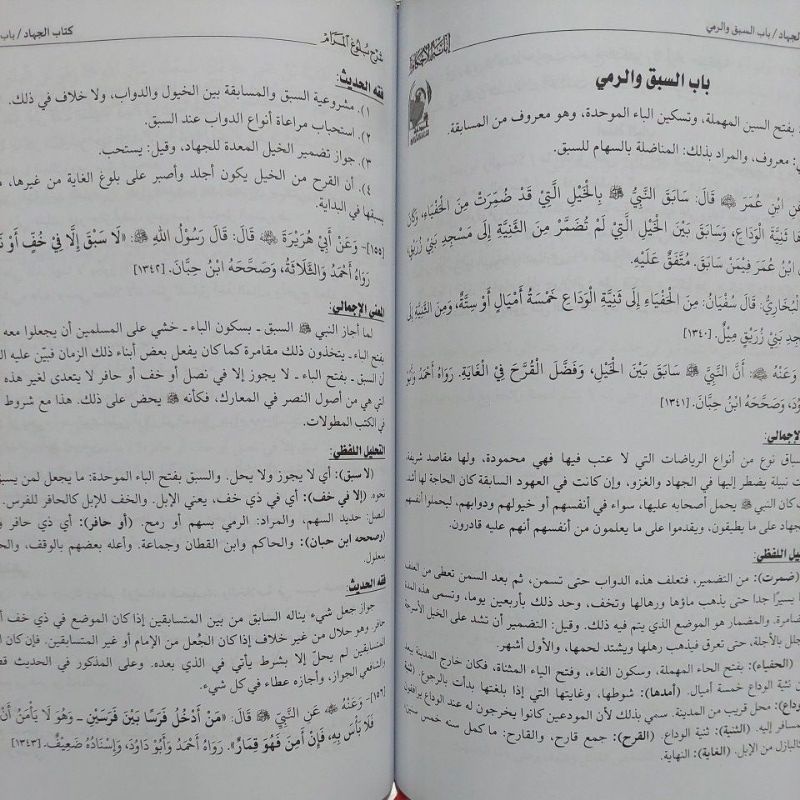 الجهاد / باب السبق والرمي
باب السبق والرمي
بفتح السين المهملة، وتسكين الباء الموحدة، وهو معروف من المسابقة.
معروف، والمراد بذلك: المناضلة بالسهام للسبق.
ابْنِ عُمَرَ ﷺ قَالَ: سَابَقَ النَّبِيُّ ﷺ بِالْخَيْلِ الَّتِي قَدْ ضُمِّرَتْ مِنَ الْحَفْيَاءِ، وَكَانَ
ثَنِيَّةَ الْوَدَاعِ، وَسَابَقَ بَيْنَ الْخَيْلِ الَّتِي لَمْ تُضَمَّرْ مِنَ الثَّنِيَّةِ إِلَى مَسْجِدِ بَنِي زُرَيْقٍ،
ابْنُ عُمَرَ فِيمَنْ سَابَقَ. مُتَّفَقٌ عَلَيْهِ.
الْبُخَارِيُّ: قَالَ سُفْيَانُ: مِنَ الْحَفْيَاءِ إِلَى ثَنِيَّةِ الْوَدَاعِ خَمْسَةُ أَمْيَالٍ أَوْ سِتَّةٌ، وَمِنَ الثَّنِيَّةِ إِلَى
بَنِي زُرَيْقٍ مِيلٌ. [١٣٤٠]
وَعَنْهُ ﷺ: أَنَّ النَّبِيَّ ﷺ سَابَقَ بَيْنَ الْخَيْلِ، وَفَضَّلَ الْقُرَّحَ فِي الْغَايَةِ. رَوَاهُ أَحْمَدُ وَأَبُو
دَاوُدَ، وَصَحَّحَهُ ابْنُ حِبَّانَ. [١٣٤١]
الإجمالي:
نوع من أنواع الرياضات التي لا عتب فيها فهي محمودة، ولها مقاصد شريفة
نبيلة يضطر إليها في الجهاد والغزو، وإن كانت في العهود السابقة كان الحاجة لها أشد
كان النبي ﷺ يحمل أصحابه عليها، سواء في أنفسهم أو خيولهم ودوابهم، ليحملوا أنفسهم
على ما يطيقون، ويقدموا على ما يعلمون من أنفسهم أنهم عليه قادرون.
اللفظي:
(ضمرت): من التضمير، فتعلف هذه الدواب حتى تسمن، ثم بعد السمن تعطى من العلف
يسيرًا جدا حتى يذهب ماؤها ورهالها وتخف، وحد ذلك بأربعين يوما، وتسمى هذه المدة
والمضمار هو الموضع الذي يتم فيه ذلك. وقيل: التضمير أن تشد على الخيل الأسرجة
بالأجلة، حتى تعرق فيذهب رهلها ويشتد لحمها، والأول أشهر.
(الحفياء): بفتح الحاء المهملة، وسكون الفاء، وفتح الياء المثناة، فكان خارج المدينة
ثنية الوداع خمسة أميال. (أمدها): شوطها، وغايتها التي إذا بلغتها بدأت بالرجوع. (ثنية
محل قريب من المدينة. سمي بذلك لأن المودعين كانوا يخرجون له عند الوداع
إليه. (الثنية): ثنية الوداع. (القرح): جمع قارح، والقارح: ما كمل سنه خمس سنين،
كالبازل من الإبل. (الغاية): النهاية.
شرح بلوغ المرام
كتاب الجهاد / باب
فقه الحديث:
١). مشروعية السبق والمسابقة بين الخيول والدواب، ولا خلاف في ذلك.
٢). استحباب مراعاة أنواع الدواب عند السبق.
٣). جواز تضمير الخيل المعدة للجهاد، وقيل: يستحب.
٤). أن القرح من الخيل يكون أجلد وأصبر على بلوغ الغاية من غيرها،
يسبقها في البداية.
[١٥٥]- وَعَنْ أَبِي هُرَيْرَةَ ﷺ قَالَ: قَالَ رَسُولُ اللهِ ﷺ: «لَا سَبَقَ إِلَّا فِي خُفٍّ أَوْ
رَوَاهُ أَحْمَدُ وَالثَّلَاثَةُ، وَصَحَّحَهُ ابْنُ حِبَّانَ. [١٣٤٢]
المعنى الإجمالي:
لما أجاز النبي ﷺ السبق ـ بسكون الباء ـ خشي على المسلمين أن يجعلوا معه
بفتح الباء ـ يتخذون ذلك مقامرة كما كان يفعل بعض أبناء ذلك الزمان فبيّن عليه
أن السبق ـ بفتح الباء ـ لا يجوز إلا في نصل أو خف أو حافر لا يتعدى لغير هذه
التي هي من أصول النصر في المعارك، فكأنه ﷺ يحض على ذلك. هذا مع شروط
في الكتب المطولات.
التحليل اللفظي:
(لا سبق): أي لا يجوز ولا يحل. والسبق بفتح الباء الموحدة: ما يجعل لمن يسبق
نحوه. (إلا في خف): أي في ذي خف، يعني الإبل. والخف للإبل كالحافر للفرس.
النصل: حديد السهم، والمراد: الرمي بسهم أو رمح. (أو حافر): أي ذي حافر
(وصححه ابن حبان): والحاكم وابن القطان وجماعة. وأعله بعضهم بالوقف،
بمعلول.
فقه الحديث:
جواز جعل شيء يناله السابق من بين المتسابقين إذا كان الموضع في ذي خف أو
حافر وهو حلال من غير خلاف إذا كان الجُعل من الإمام أو غير المتسابقين. فإن كان
المتسابقين لم يحلّ إلا بشرط يأتي في الذي بعده. وعلى المذكور في الحديث
والشافعي الجواز، وأجازه عطاء في كل شيء.
[١٥٦]- وَعَنْهُ ﷺ عَنِ النَّبِيِّ ﷺ قَالَ: «مَنْ أَدْخَلَ فَرَسًا بَيْنَ فَرَسَيْنِ ـ وَهُوَ لَا يَأْمَنُ أَنْ
فَلَا بَأْسَ بِهِ، فَإِنْ أَمِنَ فَهُوَ قِمَارٌ». رَوَاهُ أَحْمَدُ وَأَبُو دَاوُدَ، وَإِسْنَادُهُ ضَعِيفٌ. [١٣٤٣]